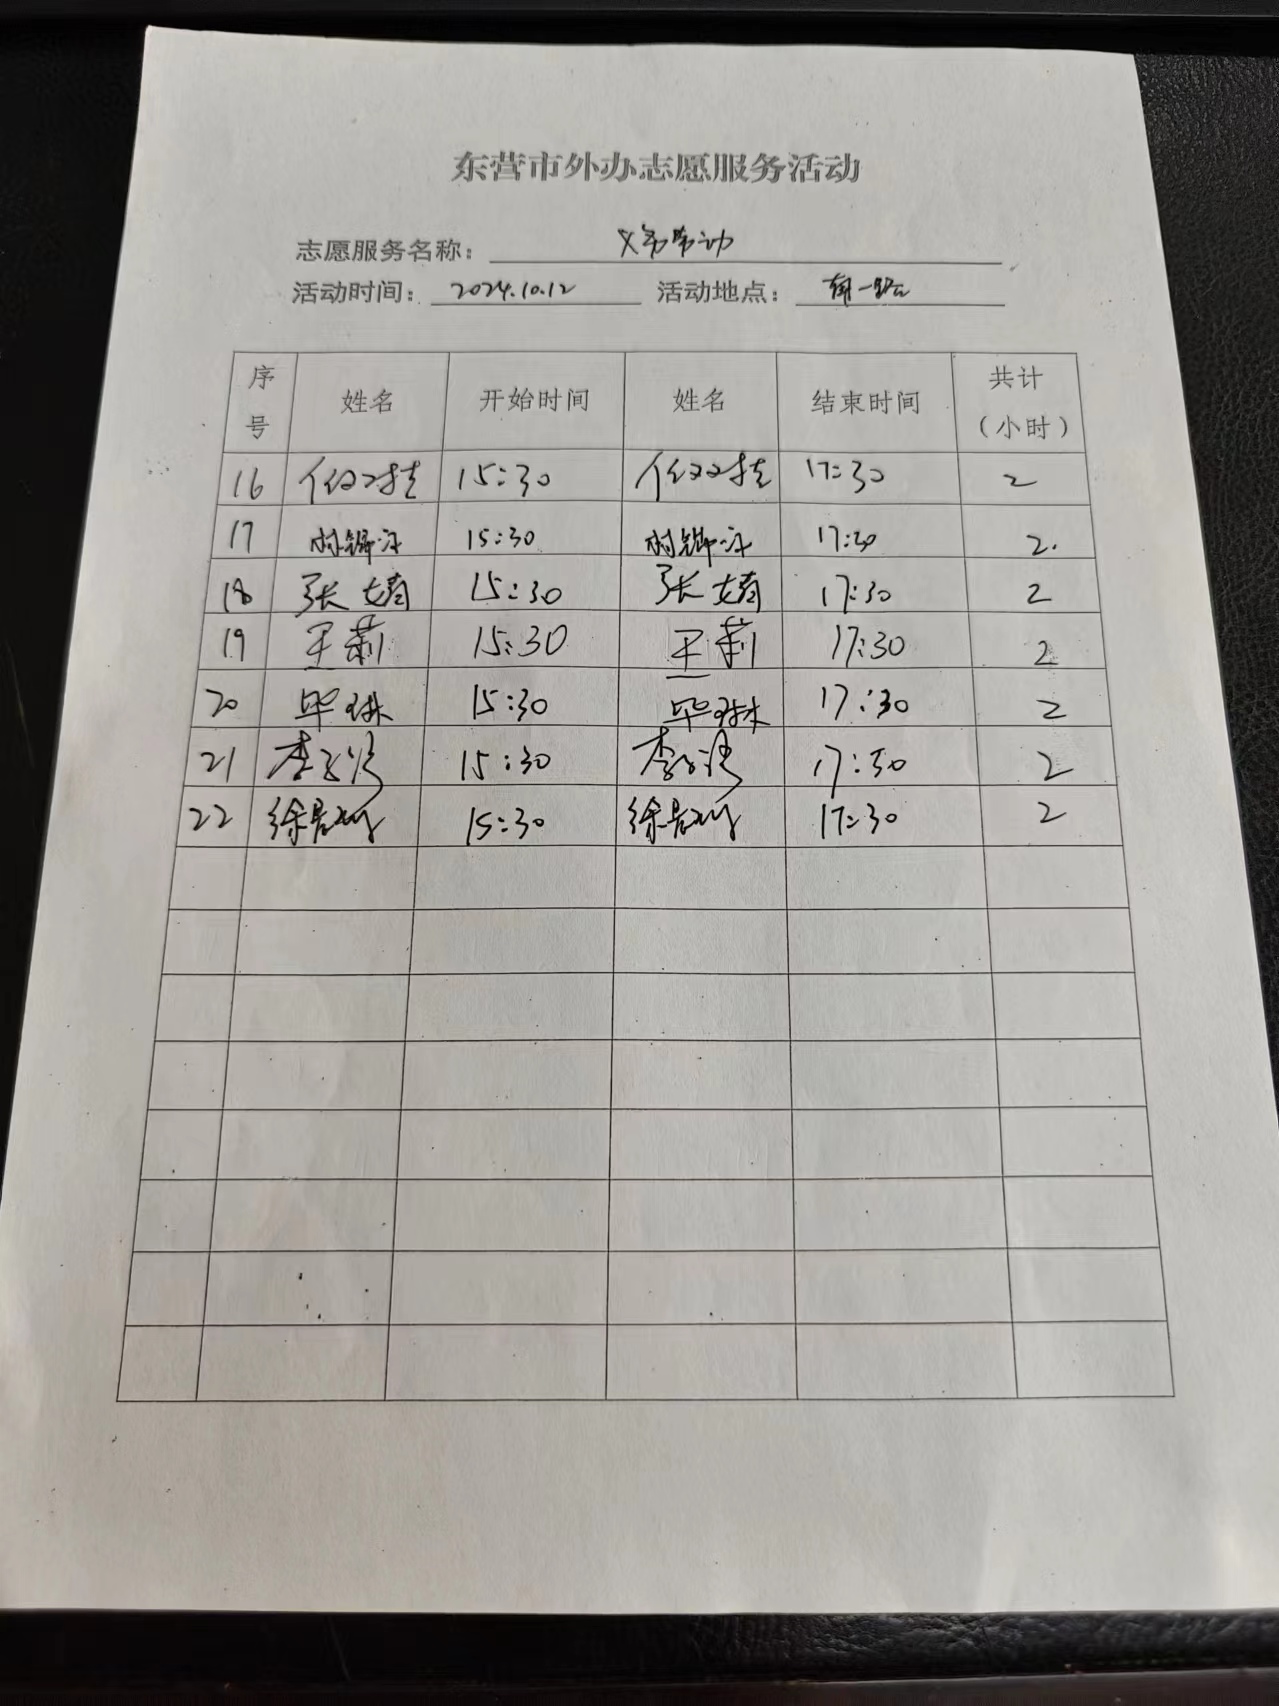 东营市外办志愿服务活动
志愿服务名称： 义务劳动
活动时间： 2024.10.12 活动地点： 南一路
序号 姓名 开始时间 姓名 结束时间 共计（小时）
16 15:30 17:30 2
17 15:30 17:30 2.
18 张婧 15:30 张婧 17:30 2
19 王莉 15:30 王莉 17:30 2
20 毕琳 15:30 毕琳 17:30 2
21 15:30 17:30 2
22 15:30 17:30 2